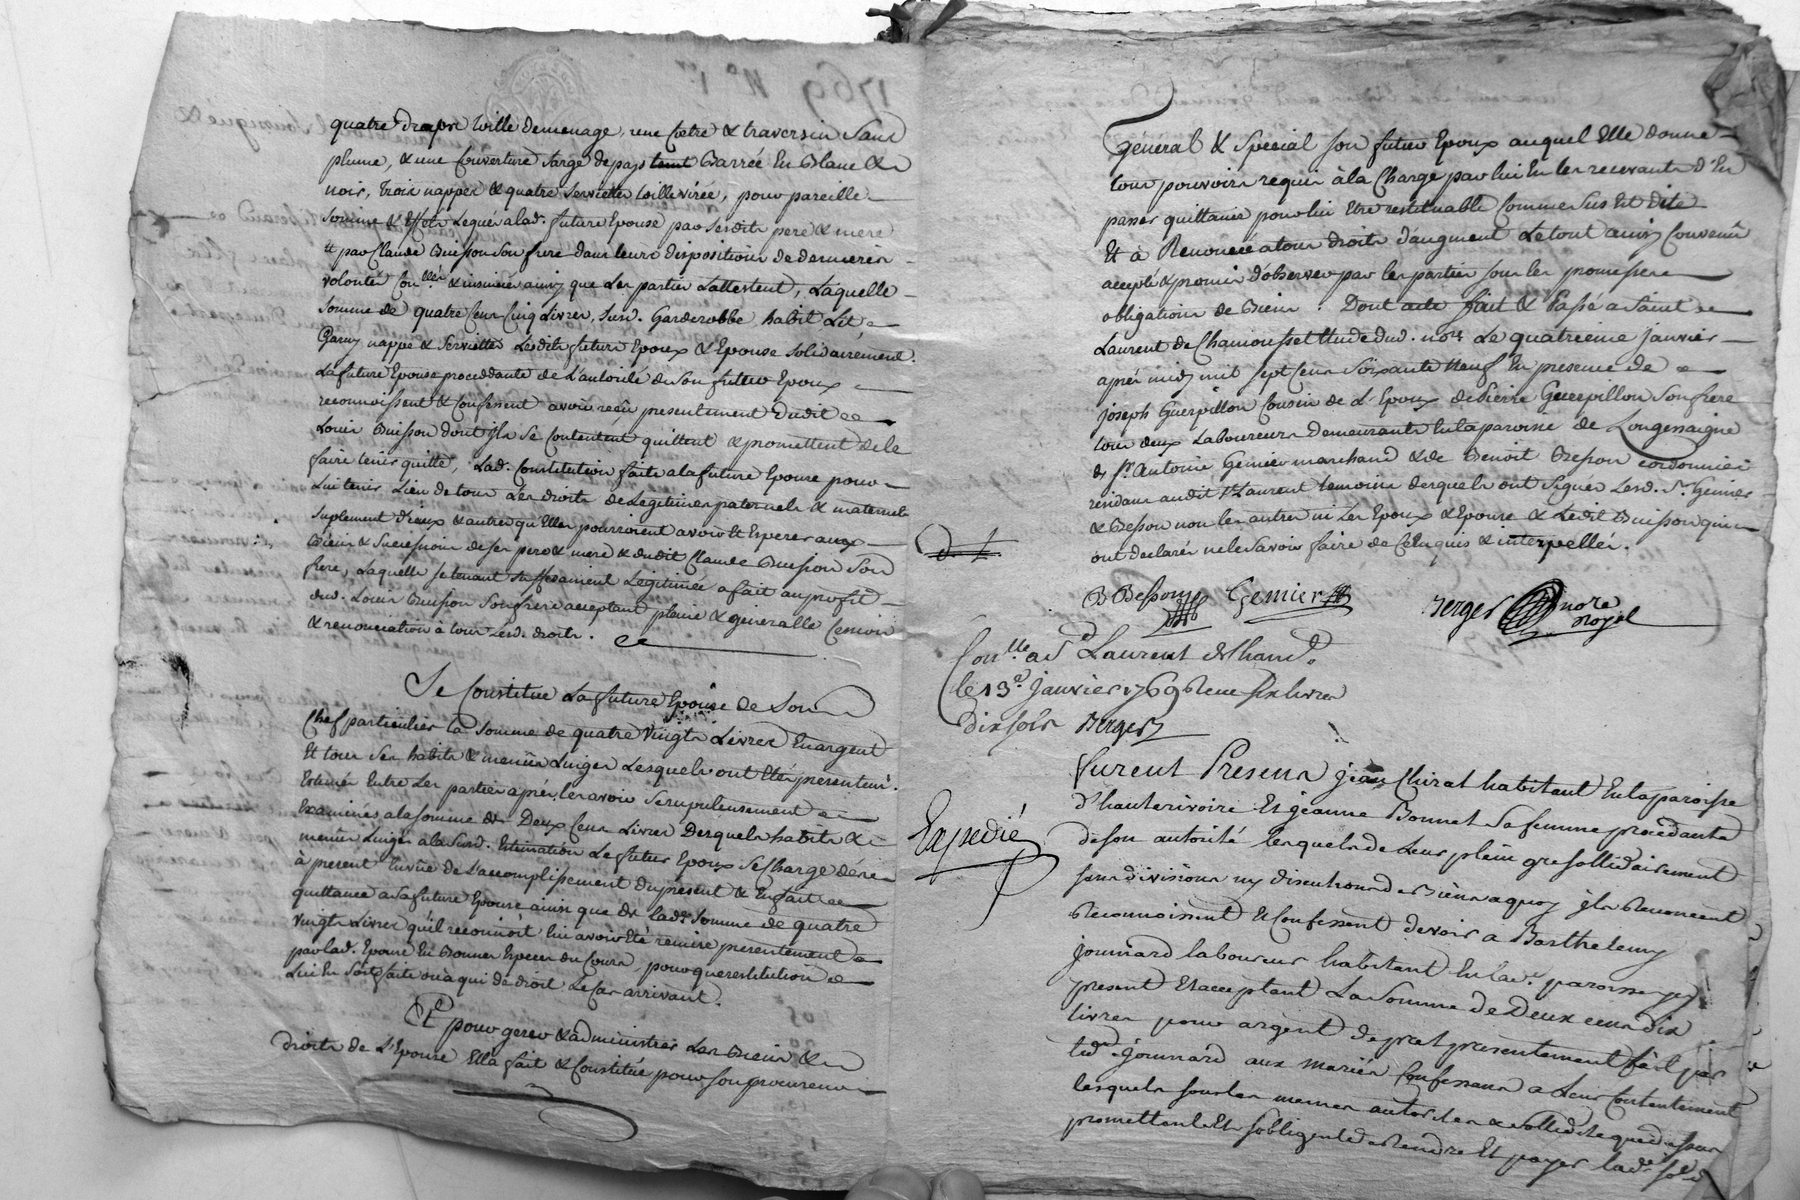 quatre draps toille demenage, une Coëtre & traversin Sans
plume, & une Couverture Sarge de pays teint Barrée En Blanc & En
noir, trois nappes & quatre Serviettes toille virée, pour pareille
Somme & Effets Legués alad. future Epouse par Sesdits pere & mere
Et par Claude Buisson Son frere dans leurs dispositions de dernieres
volontés Con.llées & insinuées ainsy que Les parties Lattestent, Laquelle
Somme de quatre Cens Cinq Livres, Susd. Garderobbe, habit Lit
Garny nappes & Serviettes Lesdits futurs Epoux & Epouse Solidairement.
La future Epouse proceddante de L'autorité du Son futur Epoux
reconnoissent & Confessent avoir reçû presentement dudit
Louis Buisson dont ils Se Contentent quittent & promettent de le
faire tenir quitte, Lad. Constitution faite ala future Epouse pour
Lui tenir Lieu de tous Les droits de Legitimes paternels & maternels
Suplement d'iceux & autres qu'Elles pourroient avoir & Esperer aux
Biens & Successions de ses pere & mere & dudit Claude Buisson Son
frere, Laquelle se tenant Suffisament Legitimée a fait au profit
dud. Louis Buisson Son frere acceptant pleine & generalle Cession
& renonciation à tous Lesd. droits.
Se Constitue La future Epouse de Son
Chef particulier La Somme de quatre vingts Livres En argent
Et tous Ses habits & menûs Linges Lesquels ont Etés presentem.t
Estimés Entre Les parties après les avoir Scrupuleusement
Examinés ala Somme de Deux Cens Livres Desquels habits &
menus Linges ala Susd. Estimation Le futur Epoux Se Charge dèsa
à present En vûe de L'accomplissement du present & En fait
quittance a Sa future Epouse ainsi que de Lade. Somme de quatre
Vingts Livres qu'il reconnoit lui avoir Eté remise presentement
par lad. Epouse En Bonnes Especes du Cours, pour que restitution
Lui En Soit faite ou à qui de droit Le Cas arrivant.
Et pour gerer & administrer Les Biens &
droits de L'Epouse Elle a fait & Constitué pour Son procureur
general & Special Son futur Epoux auquel Elle donne
tous pouvoirs requis à la Charge par lui En Les recevants d'En
passer quittance pour lui Etre restituable Comme Sus Est dite
Et à Renoncée atous droits d'augment Le tout ainsy Convenû
accepté & promis d'observer par les parties Sous les promesses
obligations de Biens. Dont acte fait & Passé a Saint
Laurent de Chamousset Etude dud. nore. Le quatrieme janvier
après midy mil sept Cens Soixante Neuf En presence de
joseph Guerpillon Cousin de L'Epoux de Pierre Guerpillon Son frere
tous deux Laboureurs Demeurants En la paroisse de Longessaigne
de Sr. Antoine Gemier marchand & de Benoit Besson cordonnier
residans audit St. Laurent temoins desquels ont Signés Lesd. Sr. Gemier
& Besson non les autres ni Les Epoux & Epouse & Ledit Buisson qui
ont declarés ne le Savoir faire de Ce Enquis & interpellés.
B Besson Gemier Berger nore royal
Con.lle a St Laurent de Cham.d
le 13e. janvier 1769 Recu six livres
dix sols Berger
Furent Presens jean Chirat habitant En la paroisse
d'hauterivoire Et jeanne Bonnet Sa femme procedante
Expedié
de son autorité lesquels de Leur plein gre sollidairement
sans division ny discution de Biens aquoy ils Renoncent
Reconnoissent Et Confessent devoir a Barthelemy
jounnard laboureur habitant En lade. paroisse icy
present Et acceptant La Somme de Deux cens dix
livres pour argent de pret presentement fait par
led. jounnard aux mariés Confessans a Leur Contentement
lesquels sous les memes autorités & sollidité que dessus
promettent Et s'obligent de Rendre Et payer lade. Soe.